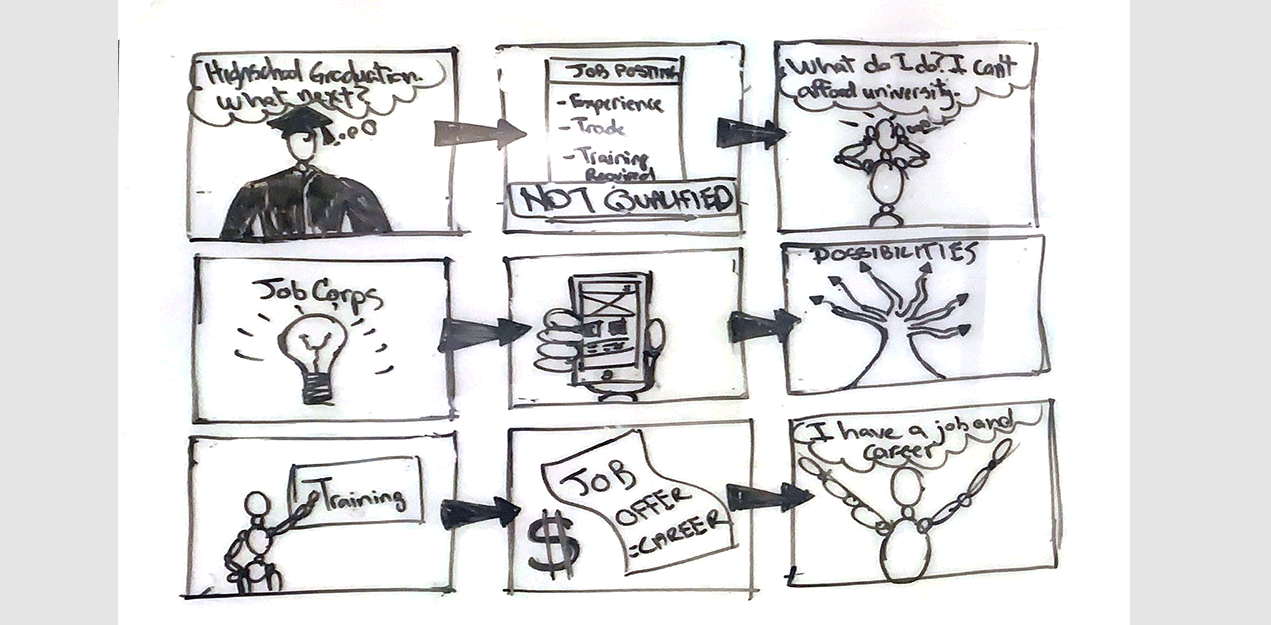 Highschool Graduation.
What next?
JOB POSTING
- Experience
- Trade
- Training
Required
NOT QUALIFIED
What do I do? I can't
afford university.
Job Corps
POSSIBILITIES
Training
$
JOB
OFFER
=CAREER
I have a job and
career